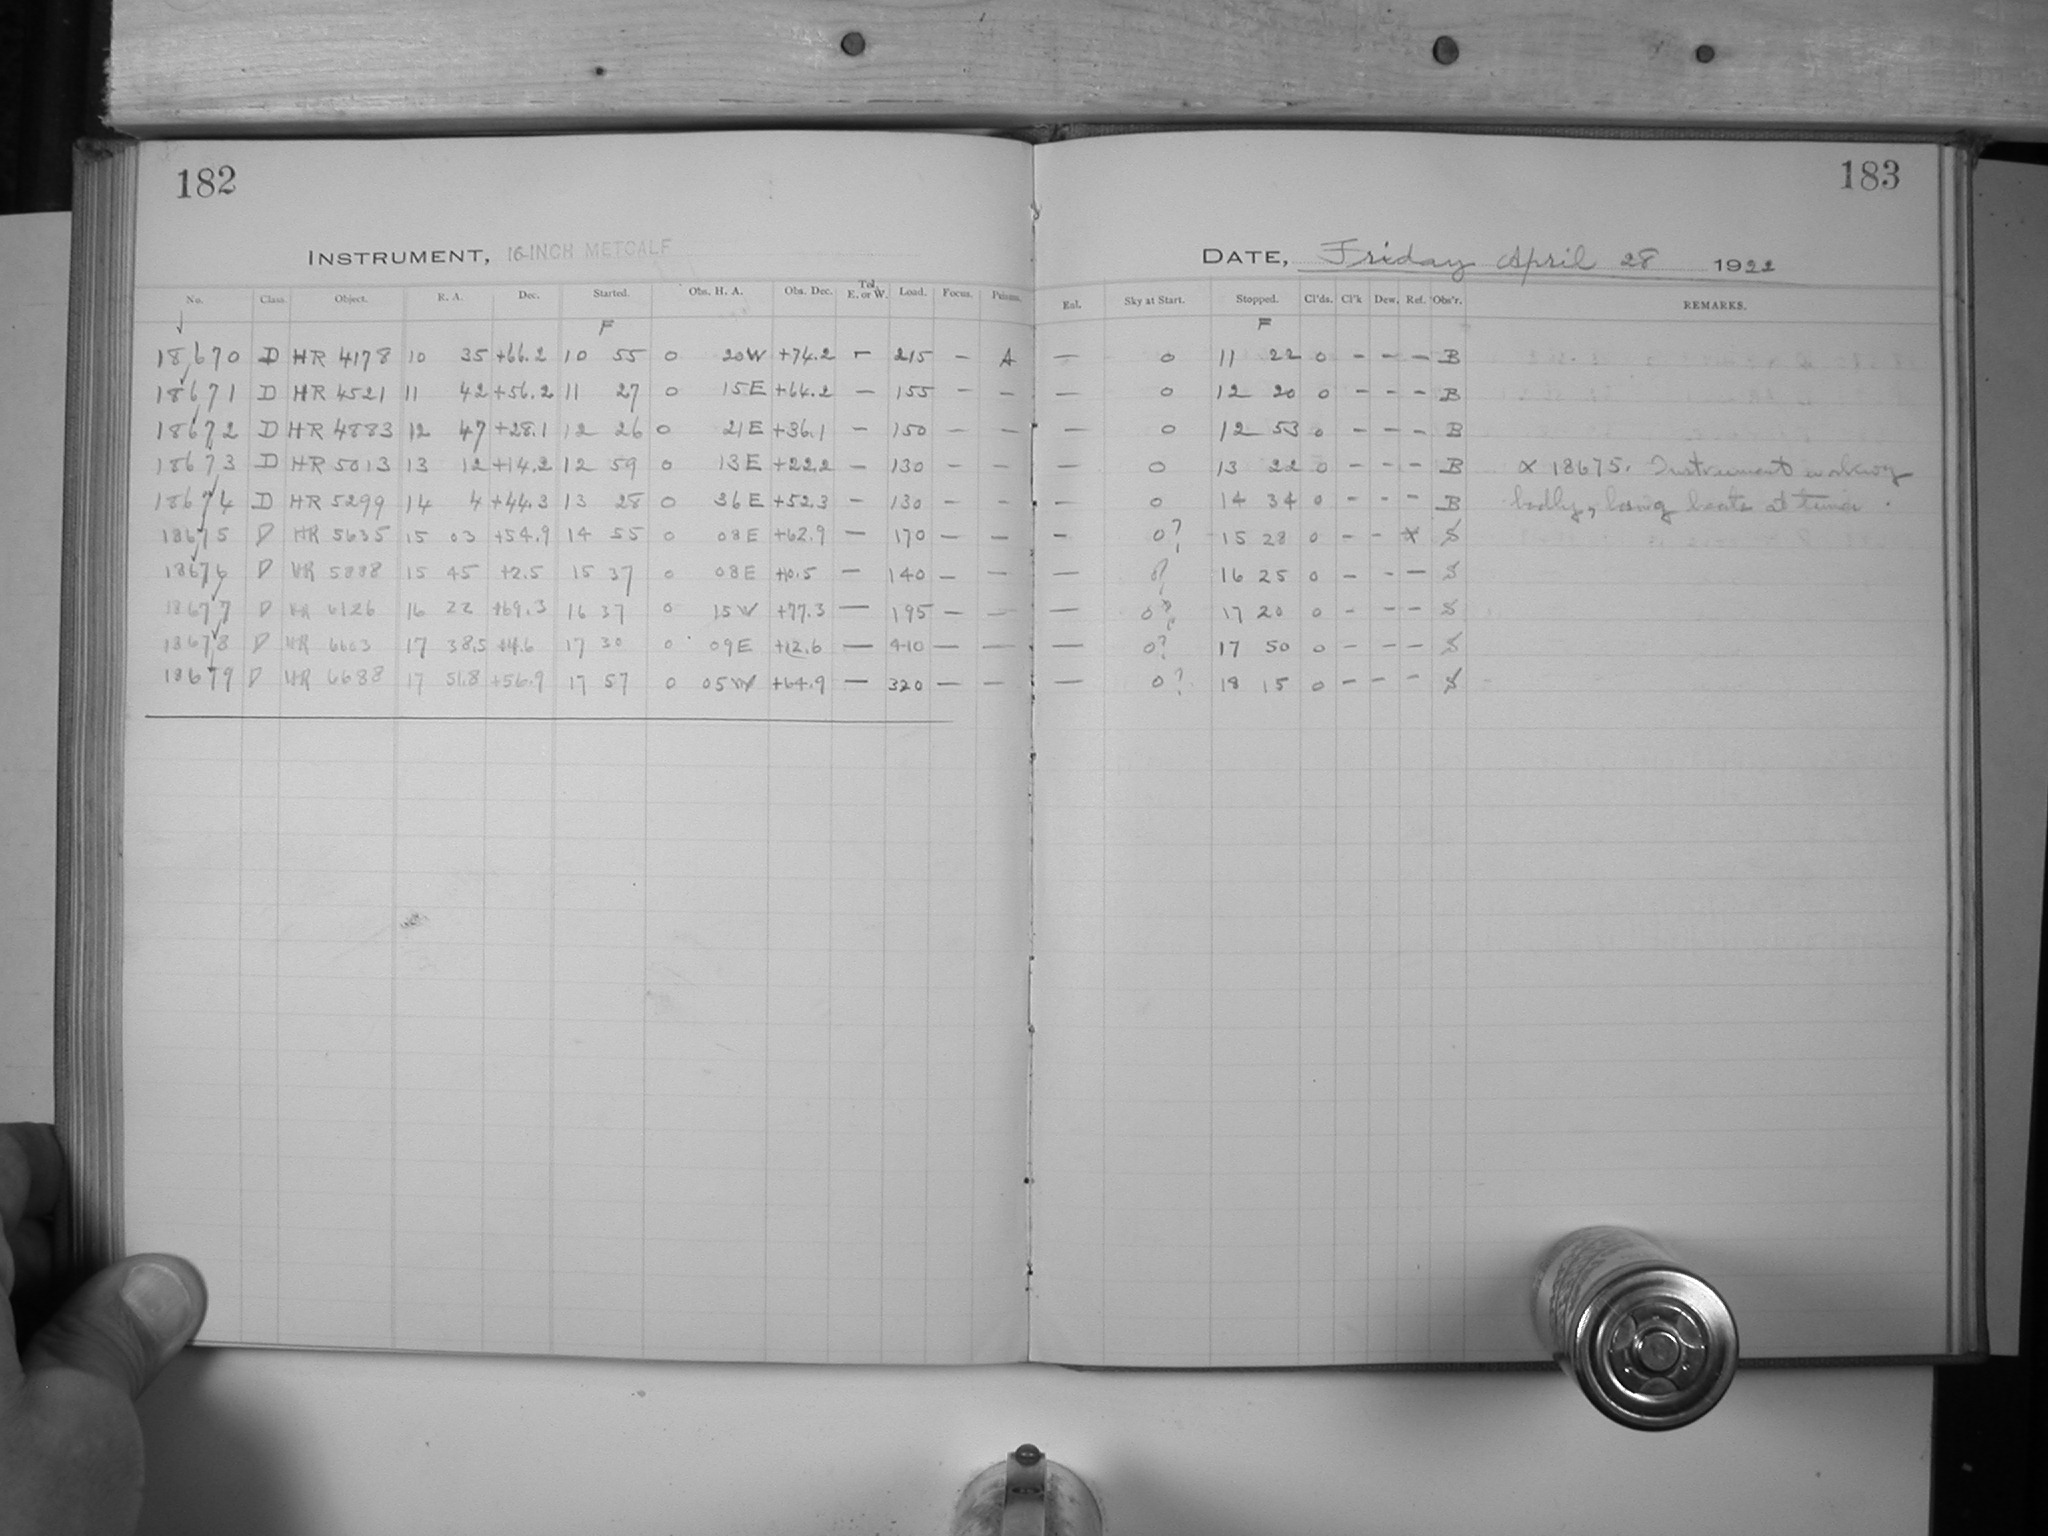 182
183
INSTRUMENT, 16-INCH METCALF
DATE, Friday April 28 1922
No. Class. Object. R. A. Dec. Started. Obs. H. A. Obs. Dec. Tel. E. or W. Load. Focus. Prisms. Eal. Sky at Start. Stopped. Cl'ds. Cl'k Dew. Ref. Obs'r. REMARKS.
F F
18670 D HR 4178 10 35 +66.2 10 55 0 20W +74.2 - 215 - A - 0 11 22 0 - - - B
18671 D HR 4521 11 42 +56.2 11 27 0 15E +64.2 - 155 - - - 0 12 20 0 - - - B
18672 D HR 4883 12 47 +28.1 12 26 0 21E +36.1 - 150 - - - 0 12 53 0 - - - B
18673 D HR 5013 13 12 +14.2 12 59 0 13E +22.2 - 130 - - - 0 13 22 0 - - - B x 18675. Instrument working
18674 D HR 5299 14 4 +44.3 13 28 0 36E +52.3 - 130 - - - 0 14 34 0 - - - B badly, losing beats at times.
18675 D HR 5635 15 03 +54.9 14 55 0 08E +62.9 - 170 - - - 0? 15 28 0 - - x S
18676 D HR 5888 15 45 +2.5 15 37 0 08E +10.5 - 140 - - - 0? 16 25 0 - - - S
18677 D HR 6126 16 22 +69.3 16 37 0 15W +77.3 - 195 - - - 0? 17 20 0 - - - S
18678 D HR 6603 17 38.5 +4.6 17 30 0 09E +12.6 - 410 - - - 0? 17 50 0 - - - S
18679 D HR 6688 17 51.8 +56.9 17 57 0 05W +64.9 - 320 - - - 0? 18 15 0 - - - S